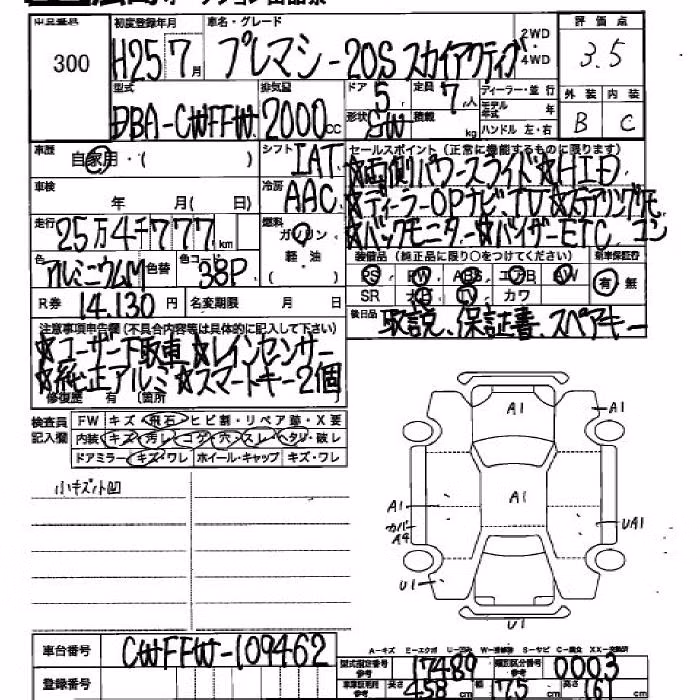 オークション出品票
300
初度登録年月 車名・グレード
H25 7月 プレマシー20S スカイアクティブ 2WD
4WD
評価点
3.5
外装 内装
B C
型式 排気量 ドア 定員 ディーラー・並行
DBA-CWFFW 2000cc 5 7人 モデル年式 年
形状 SW 積載 kg ハンドル 左・右
車歴 自家用・( ) シフト IAT
セールスポイント(正常に機能するものに限ります)
☆両側パワースライド☆HID
☆ディーラーOPナビ、TV☆ステアリングモ
☆バックモニター☆バイザーETC、コン
車検 年 月( 日) 冷房 AAC
走行 25万4千777km 燃料 ガソリン
軽・油
( )
色 アルミニウムM 色替 色コード 38P
装備品(純正品に限り○をつけてください) 新車保証書
PS PW ABS エアB AW 有・無
SR ナビ TV カワ
R券 14.130円 名変期限 月 日
後日品 取説、保証書、スペアキー
注意事項申告欄(不具合内容等は具体的に記入して下さい)
☆ユーザー下取車☆レインセンサー
☆純正アルミ☆スマートキー2個
修復歴 有 〔箇所
検査員記入欄
FW キズ・飛石・ヒビ割・リペア跡・X要
内装 キズ・汚レ・コゲ・穴・スレ・ヘタリ・破レ
ドアミラー キズ・ワレ ホイール・キャップ キズ・ワレ
小キズ小凹
A1
A1
A1
A1
カバー
A4
UA1
U1
U1
車台番号 CWFFW-109462
登録番号
A-キズ E-エクボ U-凹み W-補修跡 S-サビ C-腐食 XX-交換済
型式指定番号 参考 17489 類別区分番号 参考 0003
長さ 458cm 幅 175cm 高さ 161cm